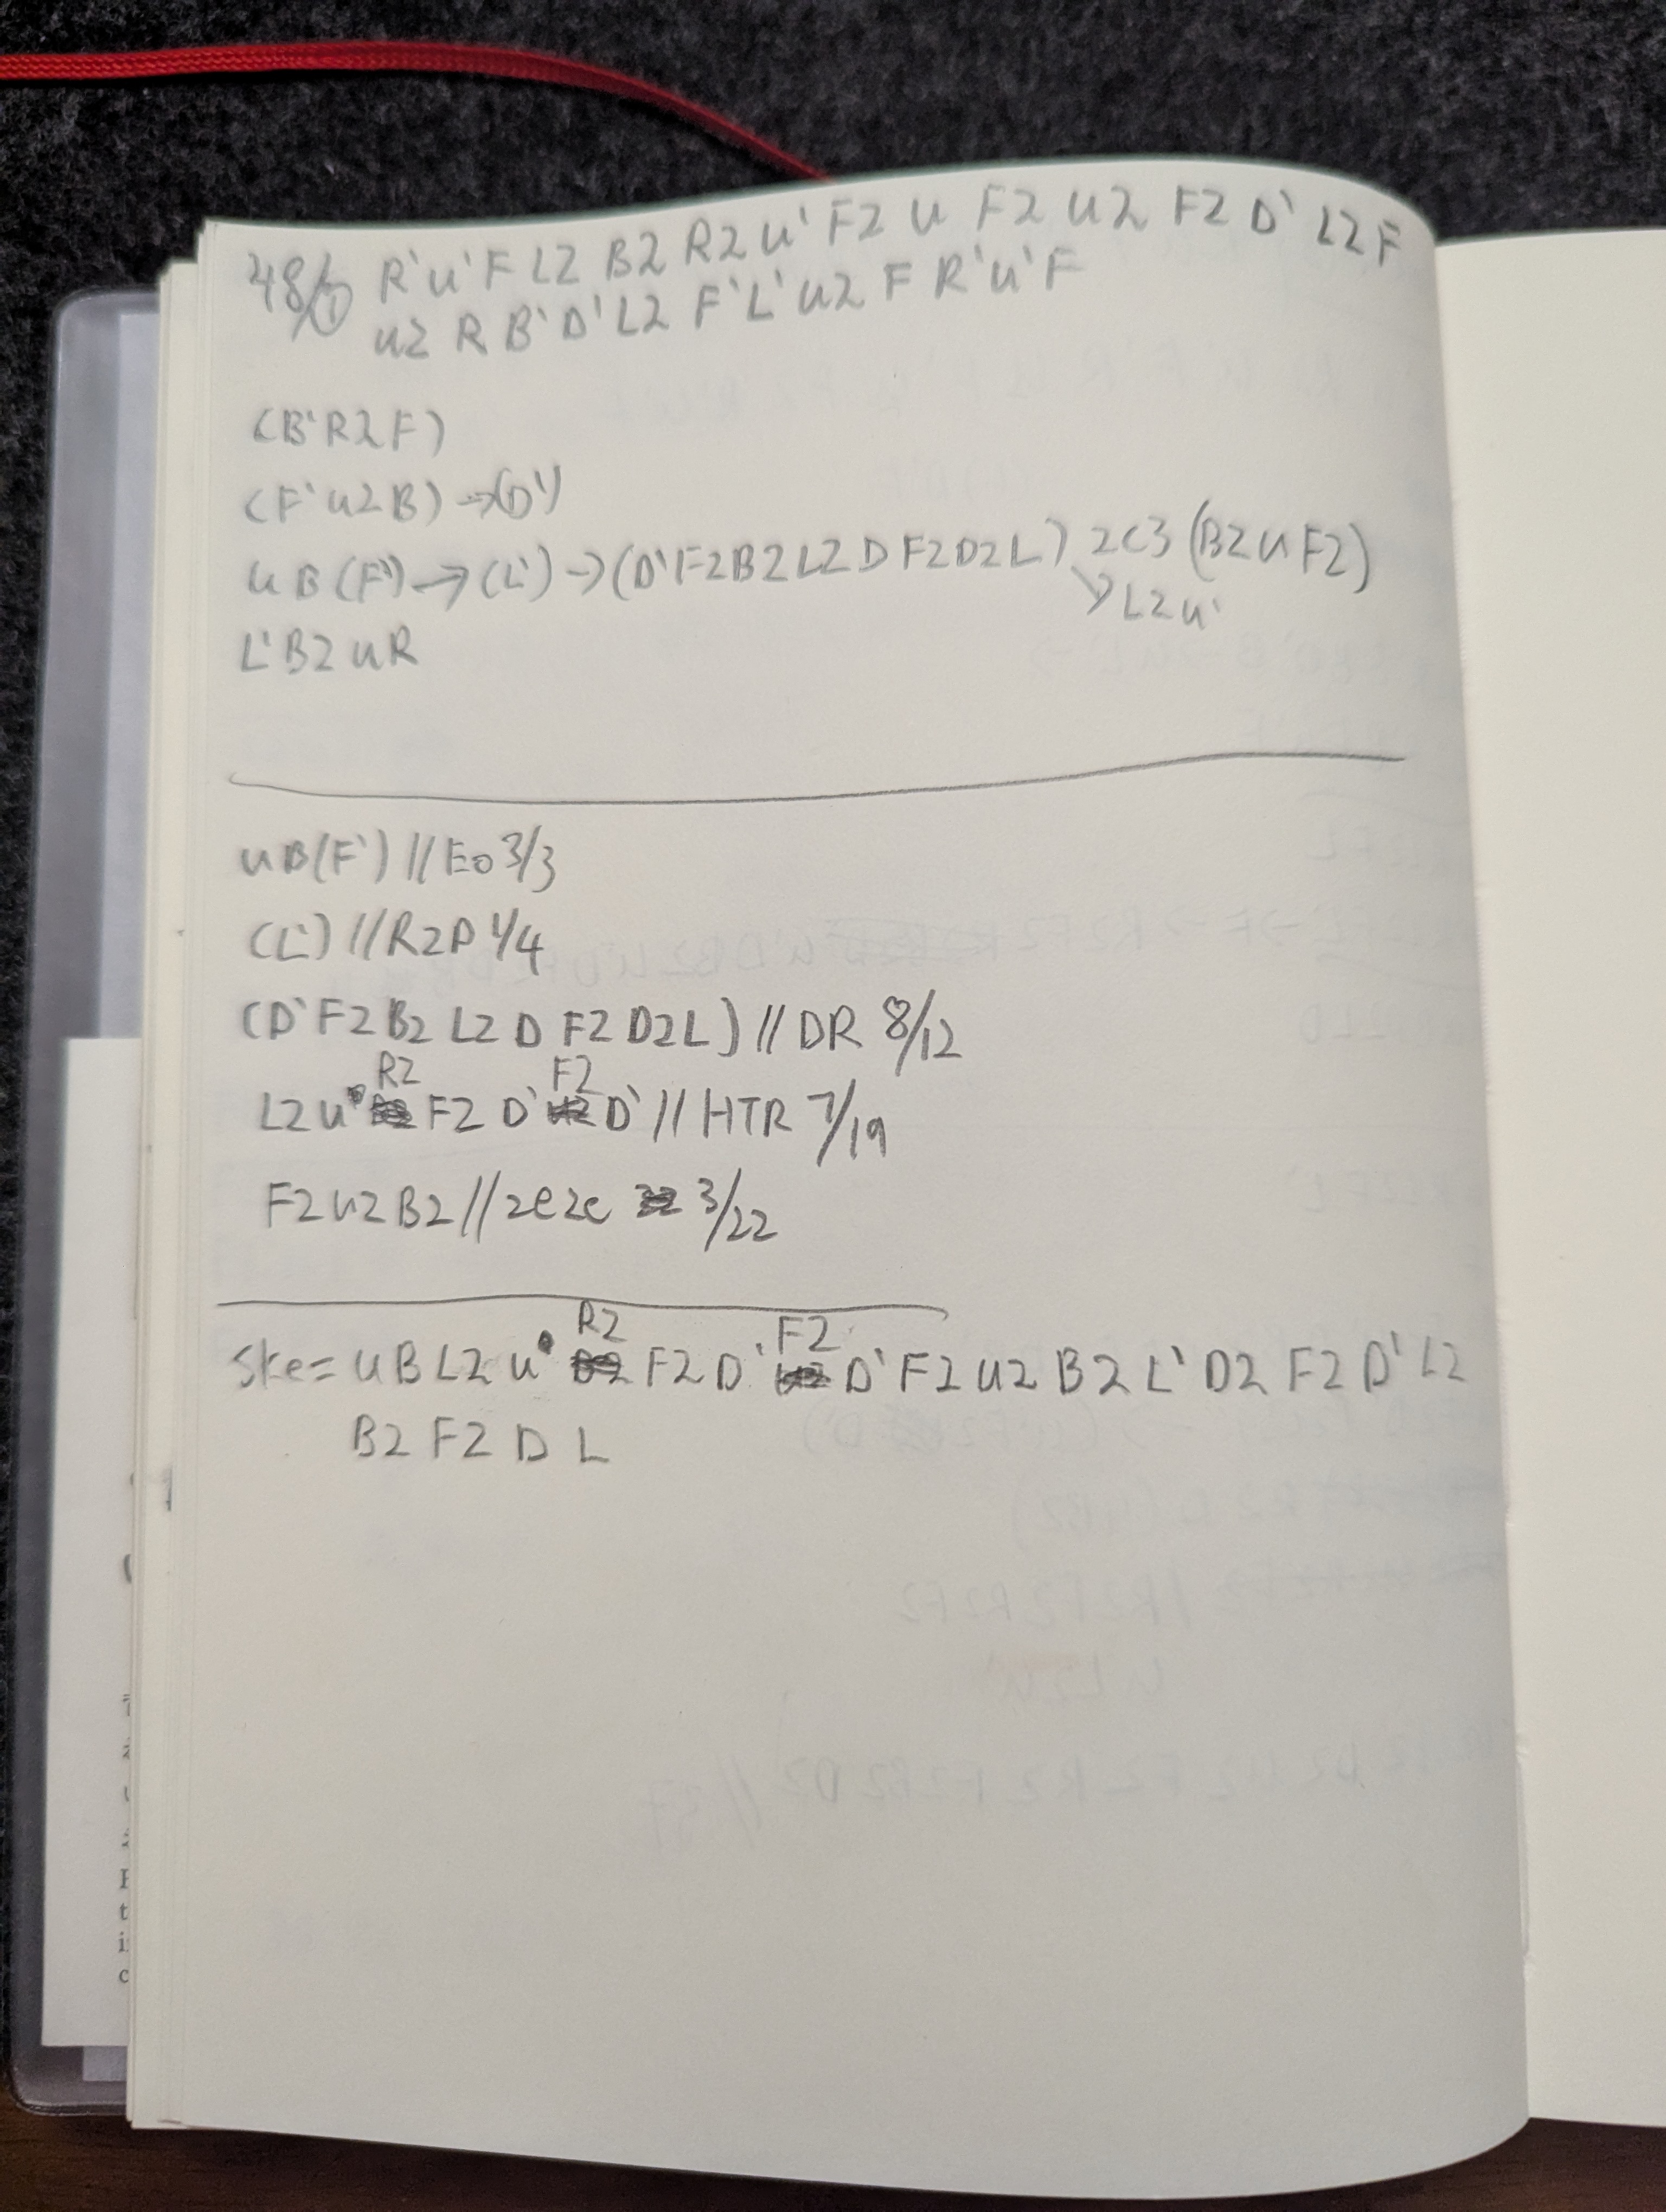 R' U' F L2 B2 R2 U' F2 U F2 U2 F2 D' L2 F
U2 R B' D' L2 F' L' U2 F R' U' F
(B' R2 F)
(F' U2 B) → (D')
U B (F') → (L') → (D' F2 B2 L2 D F2 D2 L) 2C3 (B2 U F2)
↘ L2 U'
L' B2 U R
U B (F') // EO 3/3
(L') // RZP 1/4
(D' F2 B2 L2 D F2 D2 L) // DR 8/12
R2 F2
L2 U F2 D' D' // HTR 7/19
F2 U2 B2 // 2e2e 3/22
R2 F2
Ske = U B L2 U F2 D' D' F2 U2 B2 L' D2 F2 D' L2
B2 F2 D L